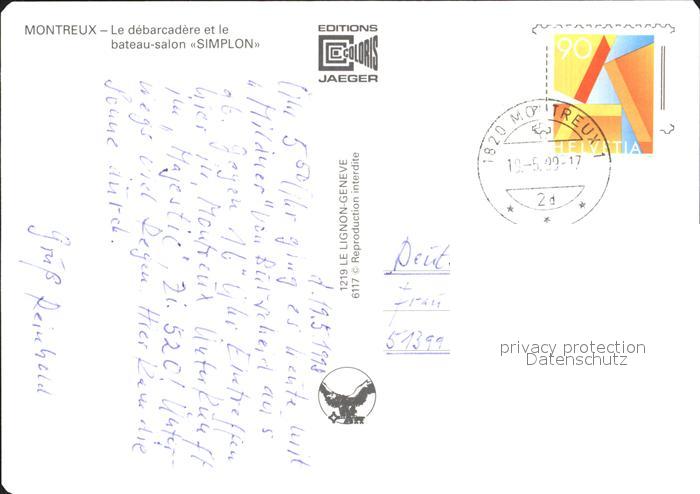 MONTREUX – Le débarcadère et le
bateau-salon «SIMPLON»
EDITIONS
COLORIS
JAEGER
90
HELVETIA
1820 MONTREUX 1
19.-5.98-17
2d
1219 LE LIGNON-GENEVE
6117 © Reproduction interdite
d. 19.5.1998
Um 5 50 Uhr ging es heute mit
"Mildner" von aus
ab. Gegen 16 Uhr Eintreffen
hier in Montreux Unterkunft
im "Majestic", Zi. 520! Unter-
wegs viel Regen. Hier kam die
Sonne durch.
Gruß Reinhold
Deut.
Frau
51399
privacy protection
Datenschutz